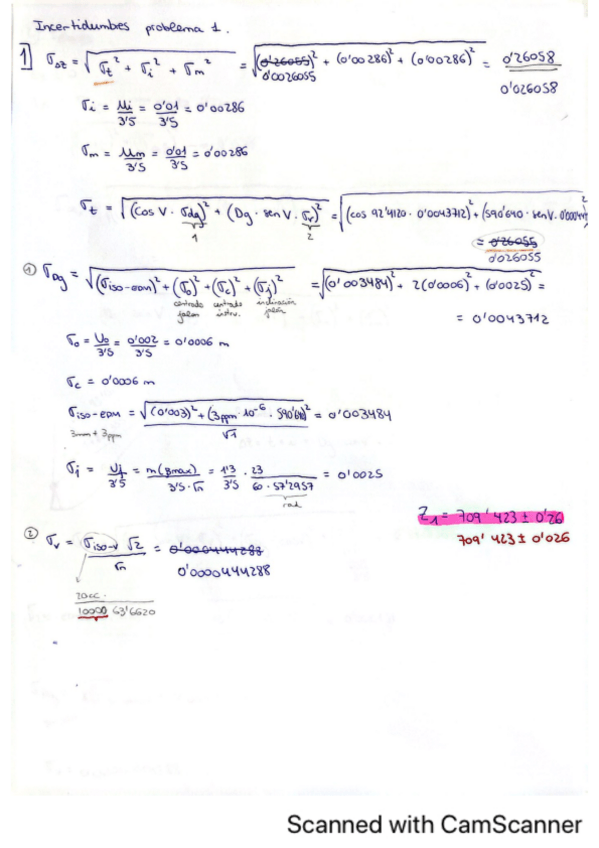 Incertidumbes problema 1.
1] σΔz = √(σt² + σi² + σm²) = √((0'26055)² + (0'00286)² + (0'00286)²) = 0'26058
0'0026055
0'026058
σi = μi/3'5 = 0'01/3'5 = 0'00286
σm = μm/3'5 = 0'01/3'5 = 0'00286
σt = √((cos V · σdg)² + (Dg · sen V · σv)²) = √((cos 92'4120 · 0'0043712)² + (590'640 · sen V · 0'00044
1 2
= 0'26055
0'026055
① σDg = √((σiso-edm)² + (σo)² + (σc)² + (σj)²) = √((0'003484)² + 2(0'0006)² + (0'0025)² =
centrado jalon centrado instru. inclinación jalón
= 0'0043712
σo = Uo/3'5 = 0'002/3'5 = 0'0006 m
σc = 0'0006 m
σiso-edm = √((0'003)² + (3ppm · 10⁻⁶ · 590'640)²)/√1 = 0'003484
3mm + 3ppm
σj = Uj/3'5 = m(βmax)/3'5·√n = 1'3/3'5 · 23/60·57'2957 = 0'0025
rad
Z1 = 709'423 ± 0'26
709'423 ± 0'026
② σv = σiso-v √2/√n = 0'000444288
0'0000444288
20cc.
10000 63'6620
Scanned with CamScanner